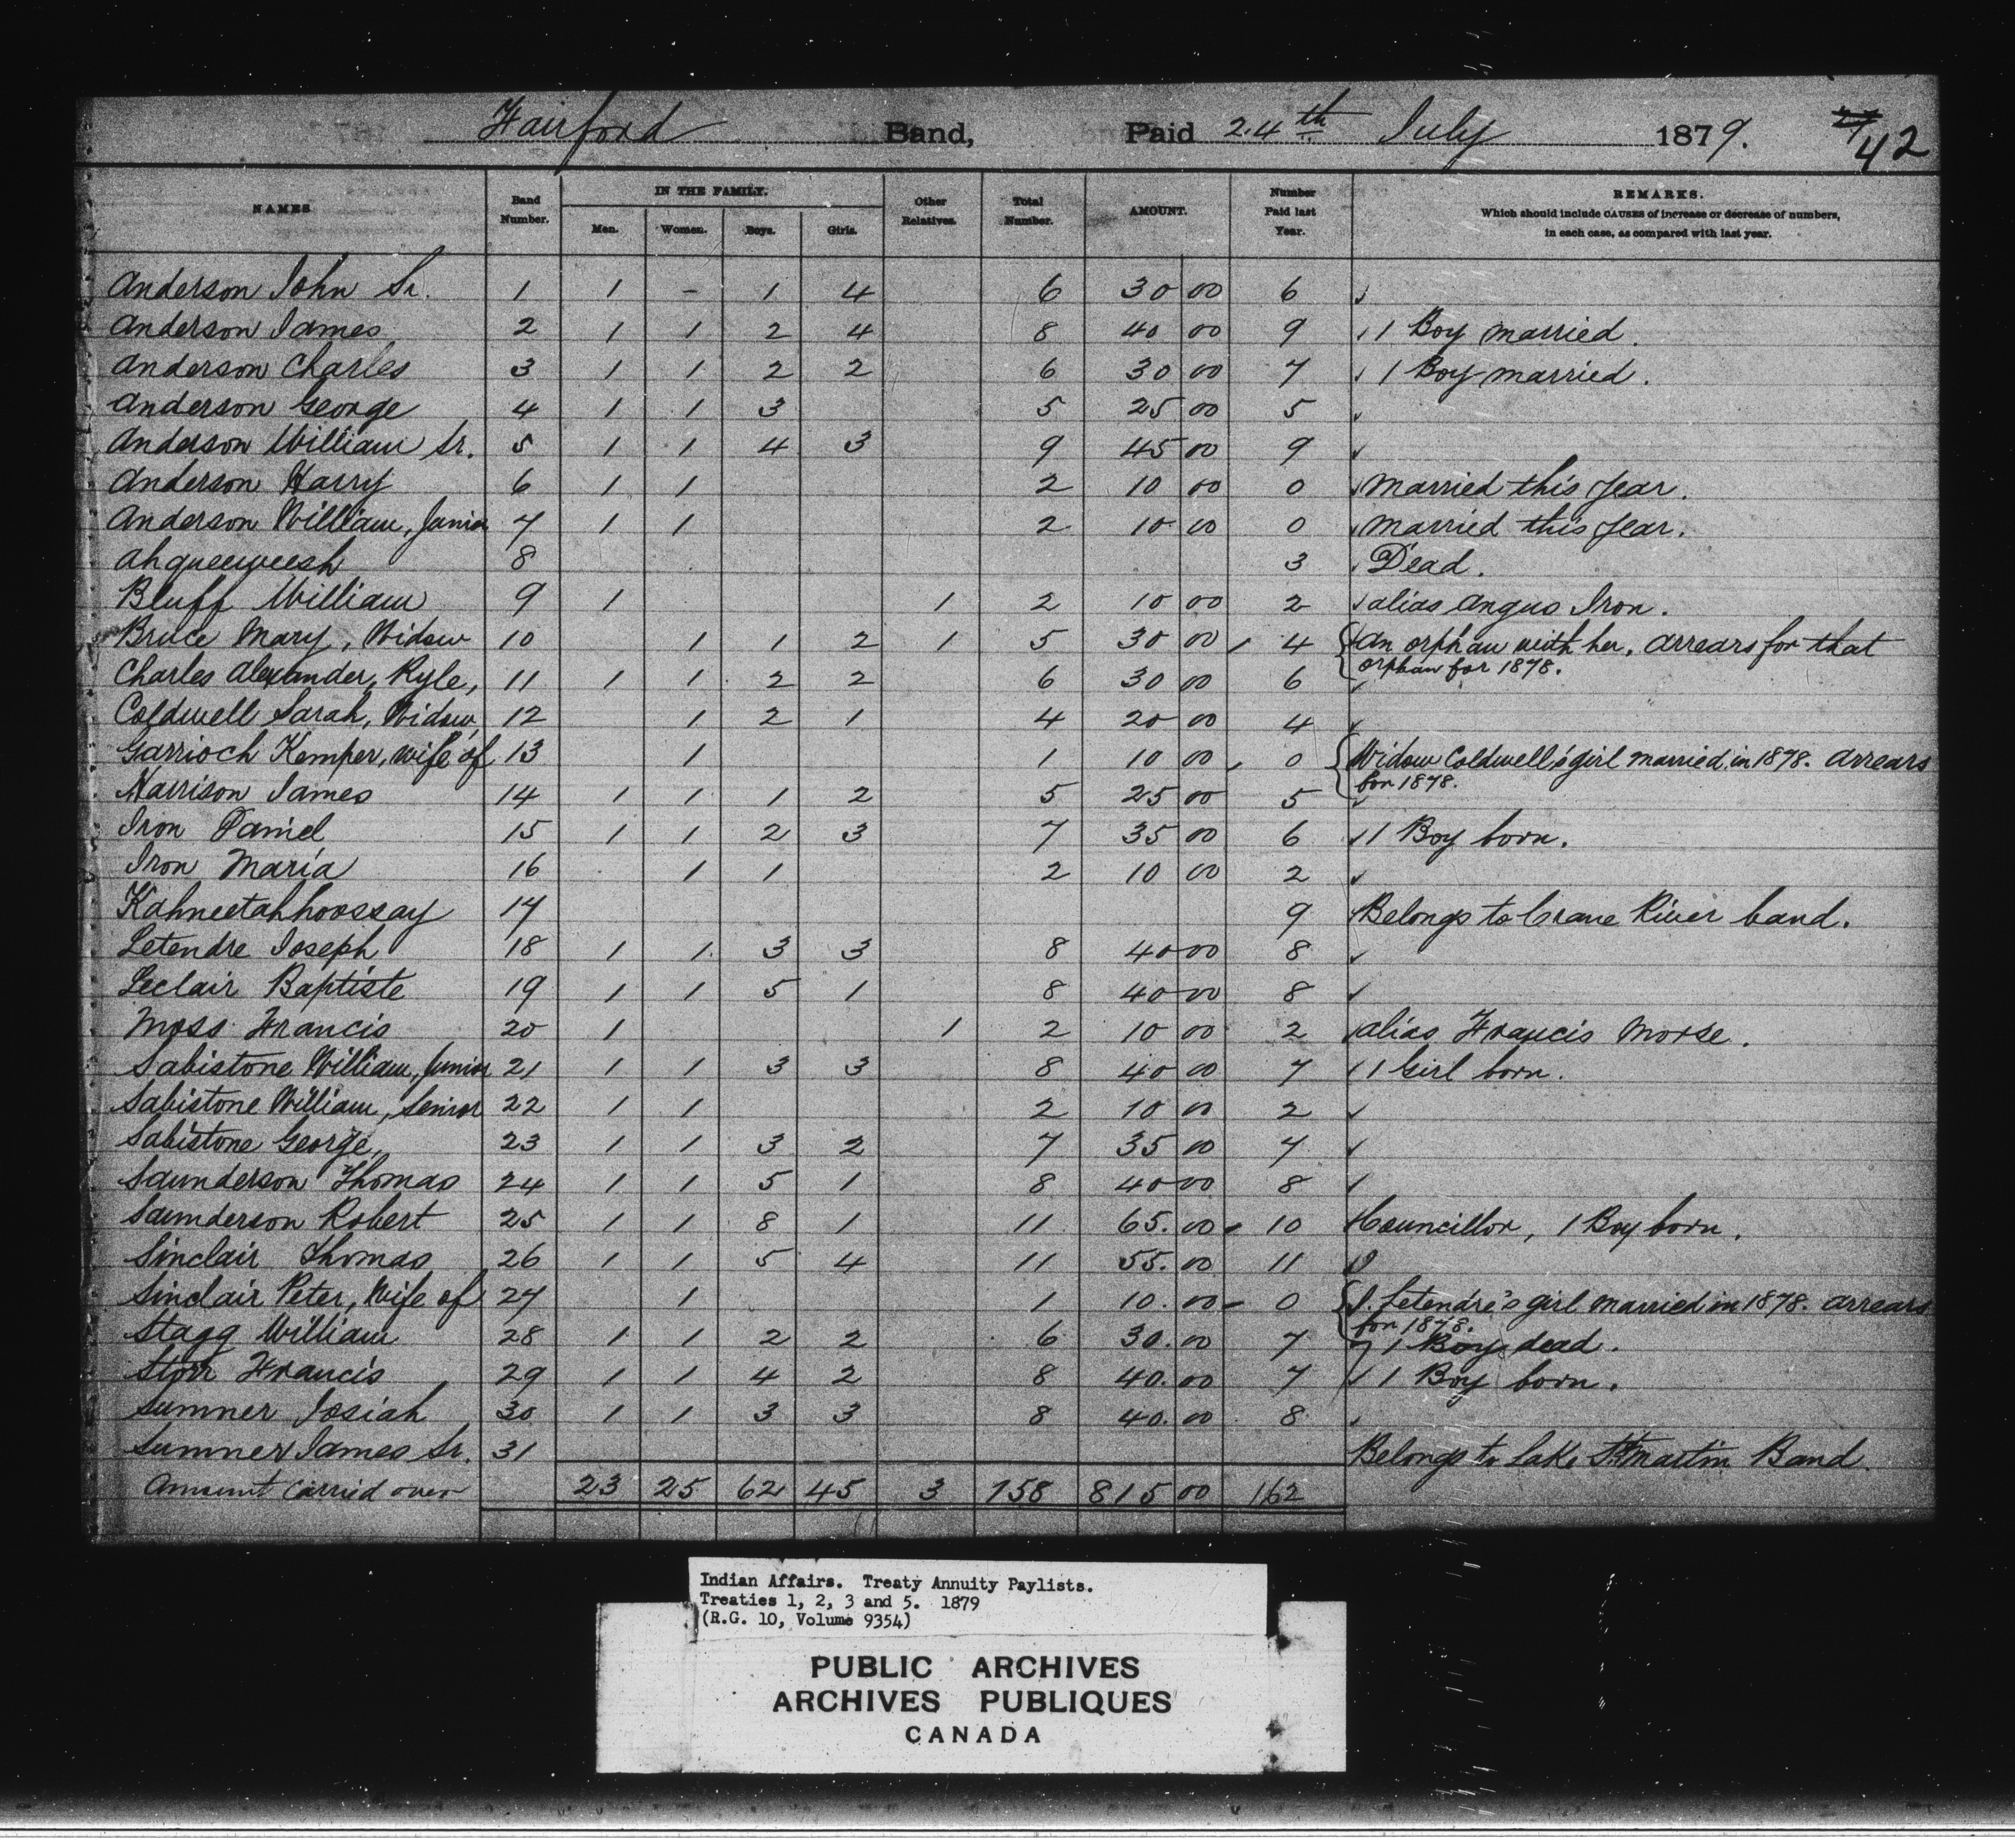 Fairford Band, Paid 24th July 1879. 42
NAMES Band Number. IN THE FAMILY. Men. Women. Boys. Girls. Other Relatives. Total Number. AMOUNT. Number Paid last Year. REMARKS.
Which should include CAUSES of increase or decrease of numbers,
in each case, as compared with last year.
Anderson John Sr. 1 1 - 1 4 6 30 00 6 ✓
Anderson James 2 1 1 2 4 8 40 00 9 ✓ 1 Boy married.
Anderson Charles 3 1 1 2 2 6 30 00 7 ✓ 1 Boy married.
Anderson George 4 1 1 3 5 25 00 5 ✓
Anderson William Sr. 5 1 1 4 3 9 45 00 9 ✓
Anderson Harry 6 1 1 2 10 00 0 ✓ Married this year.
Anderson William, Junior 7 1 1 2 10 00 0 ✓ Married this year.
Ahqueeweesh 8 3 ✓ Dead.
Bluff William 9 1 1 2 10 00 2 ✓ alias Angus Iron.
Bruce Mary, Widow 10 1 1 2 1 5 30 00 4 ✓ An orphan with her. Arrears for that
orphan for 1878.
Charles Alexander, Kyle, 11 1 1 2 2 6 30 00 6 ✓
Coldwell Sarah, Widow 12 1 2 1 4 20 00 4 ✓
Garrioch Kemper, wife of 13 1 1 10 00 0 Widow Coldwell's girl married in 1878. Arrears
for 1878.
Harrison James 14 1 1 1 2 5 25 00 5 ✓
Iron Daniel 15 1 1 2 3 7 35 00 6 ✓ 1 Boy born.
Iron Maria 16 1 1 2 10 00 2 ✓
Kahneetahhoossay 17 9 ✓ Belongs to Crane River band.
Letendre Joseph 18 1 1 3 3 8 40 00 8 ✓
Leclair Baptiste 19 1 1 5 1 8 40 00 8 ✓
Moss Francis 20 1 1 2 10 00 2 ✓ alias Francis Morse.
Sabistone William, Junior 21 1 1 3 3 8 40 00 7 ✓ 1 Girl born.
Sabistone William, Senior 22 1 1 2 10 00 2 ✓
Sabistone George, 23 1 1 3 2 7 35 00 7 ✓
Saunderson Thomas 24 1 1 5 1 8 40 00 8 ✓
Saunderson Robert 25 1 1 8 1 11 65.00 10 ✓ Councillor, 1 Boy born.
Sinclair Thomas 26 1 1 5 4 11 55.00 11 ✓
Sinclair Peter, Wife of 27 1 1 10.00 0 J. Letendre's girl married in 1878. Arrears
for 1878.
Stagg William 28 1 1 2 2 6 30.00 7 ✓ 1 Boy dead.
Storr Francis 29 1 1 4 2 8 40.00 7 ✓ 1 Boy born.
Sumner Josiah 30 1 1 3 3 8 40.00 8 ✓
Sumner James Sr. 31 Belongs to Lake St. Martin Band.
Amount carried over 23 25 62 45 3 158 815 00 162
Indian Affairs. Treaty Annuity Paylists.
Treaties 1, 2, 3 and 5. 1879
(R.G. 10, Volume 9354)
PUBLIC ARCHIVES
ARCHIVES PUBLIQUES
CANADA